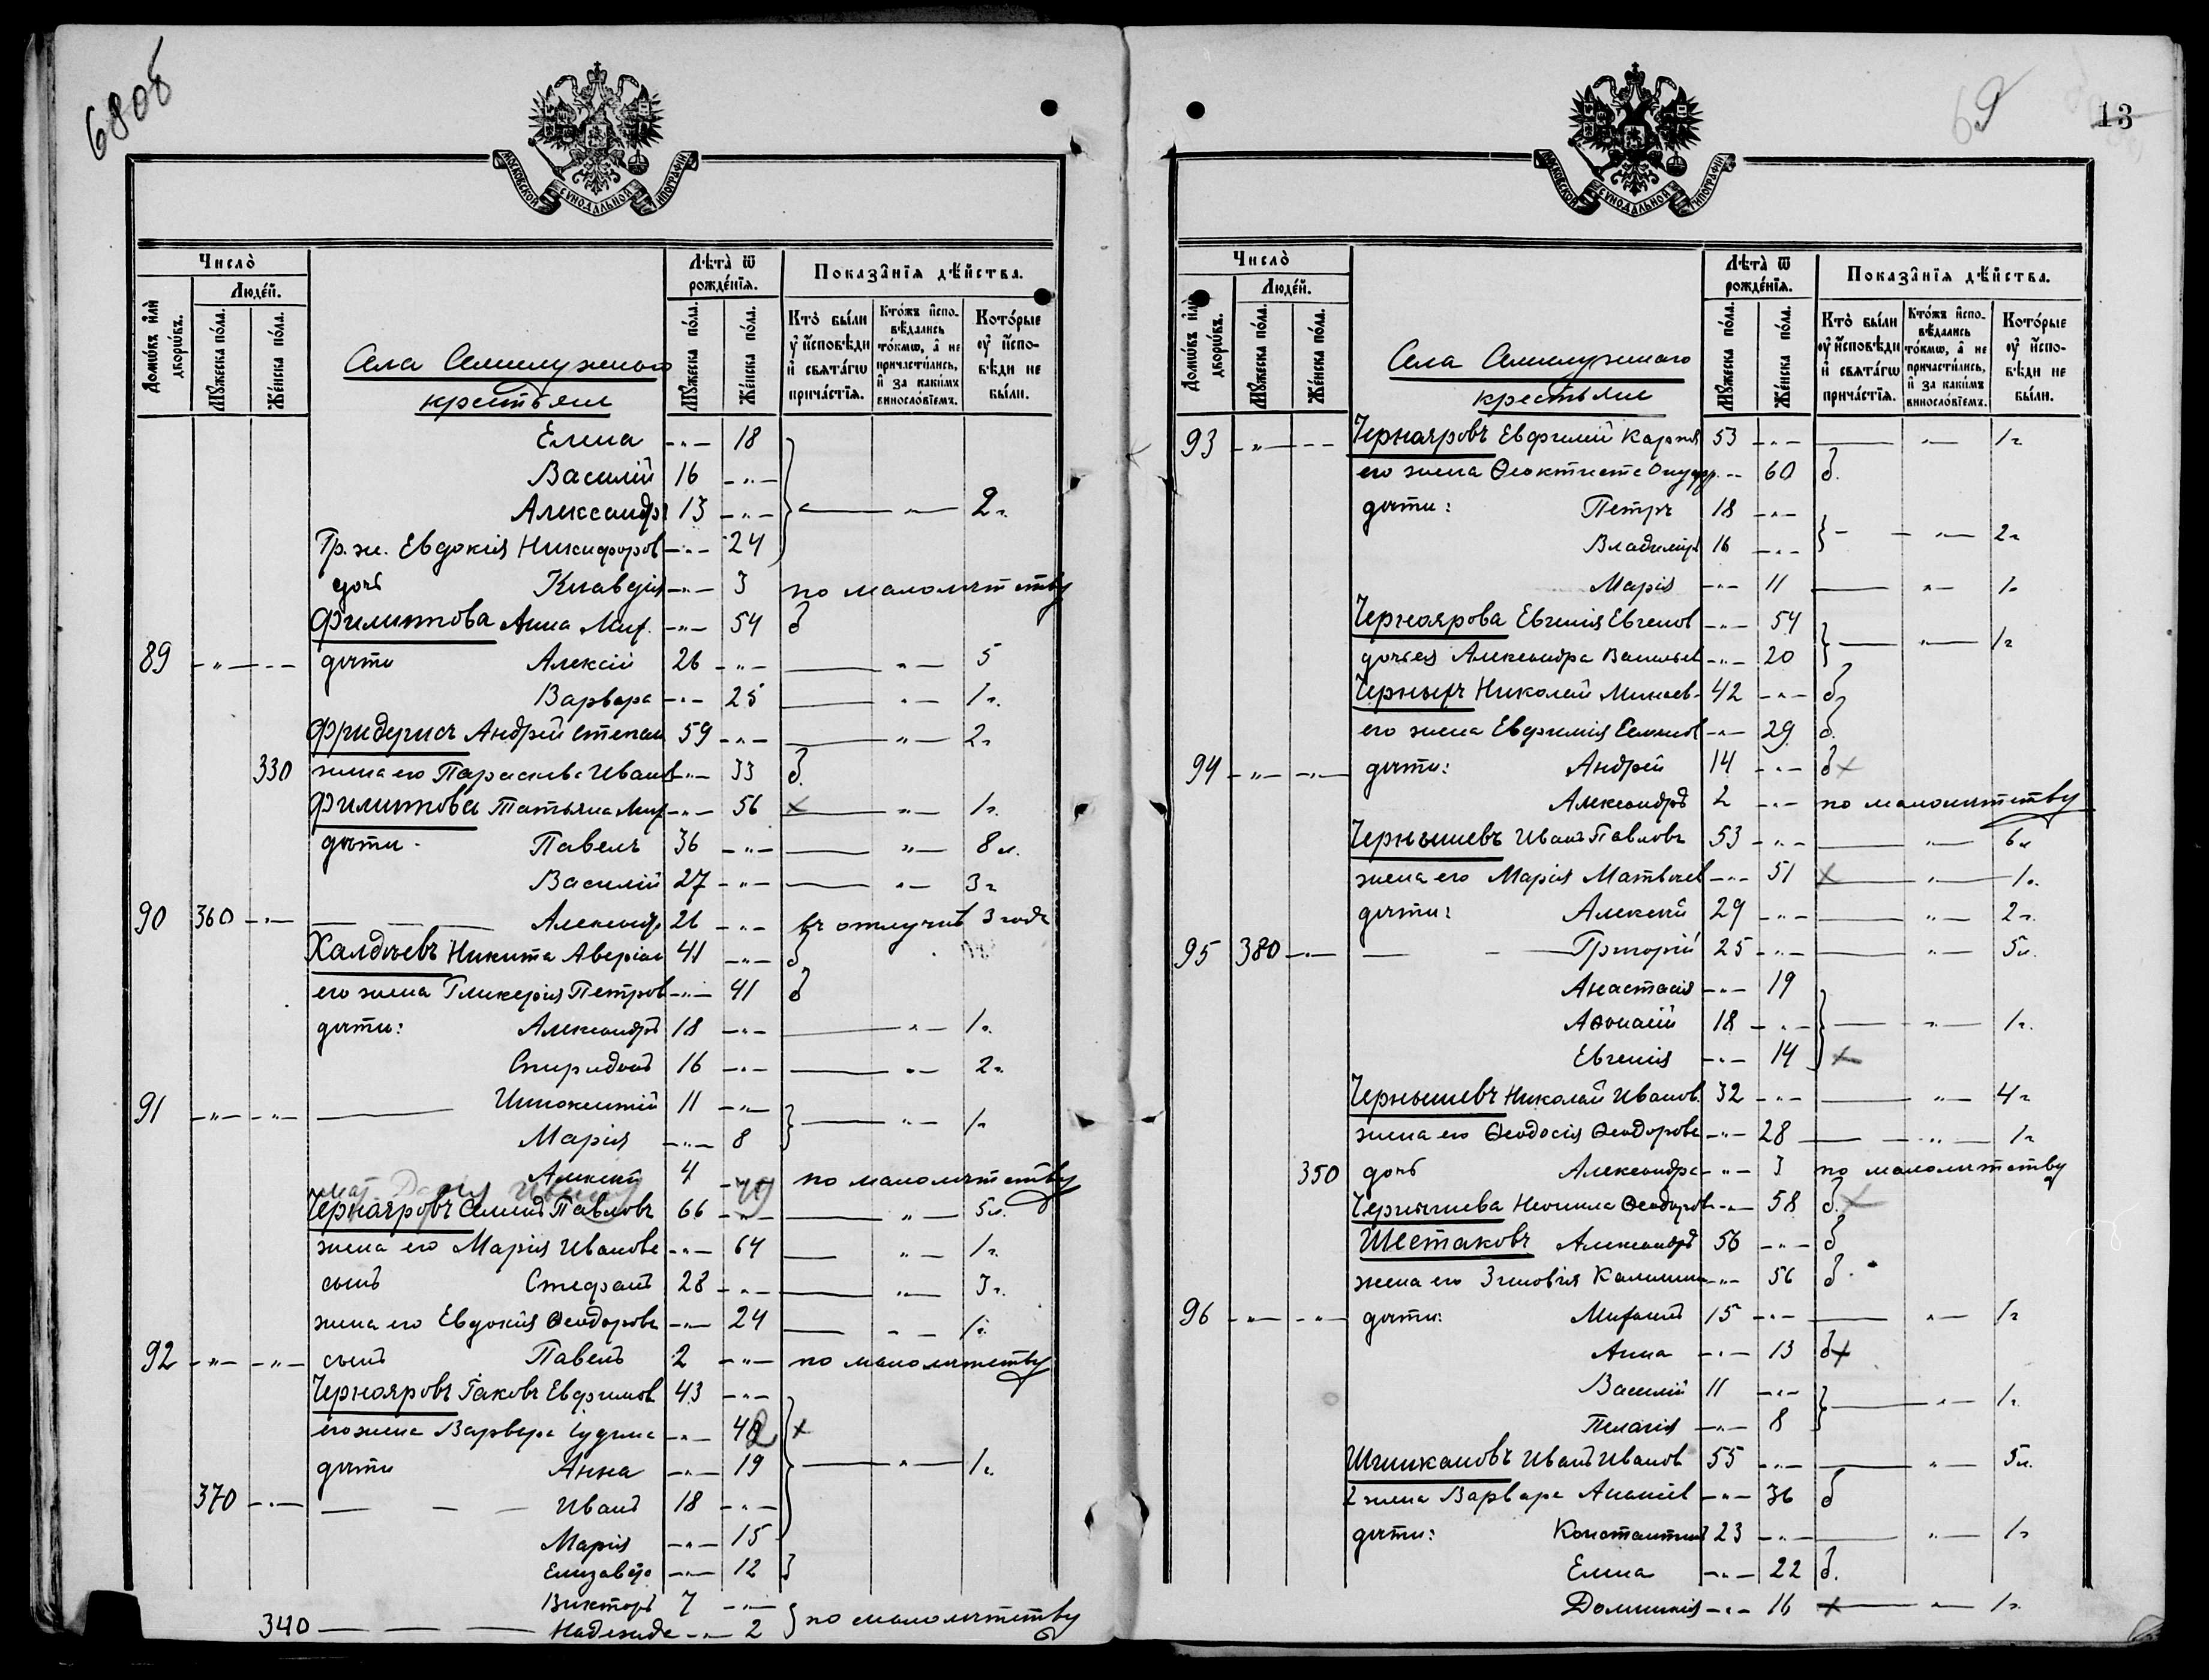 68об
МОСКОВСКОЙ СѴНОДАЛЬНОЙ ТИПОГРАФІИ
Число
Людей.
Домовъ или дворовъ.
Мужеска пола.
Женска пола.
Села Семилужнаго
крестьяне
Лѣта ѿ рожденія.
Мужеска пола.
Женска пола.
Показанія дѣйства.
Кто были у исповѣди и святагω причастія.
Ктожъ исповѣдались токмω, а не причастились, и за какимъ винословіемъ.
Которые у исповѣди не были.
Елена -"- 18
Василій 16 -"-
Александръ 13 -"- — " — 2 г.
Гр. ж. Евдокія Никифоров -"- 24
дочь Клавдія -"- 3 по малолѣтству
Филиппова Анна Мих. -"- 54 б
89 -"- -"- дѣти Алексій 26 -"- — " — 5
Варвара -"- 25 — " — 1 г.
Фридерисъ Андрей Степан 59 -"- — " — 2 г
330 жена его Параскева Иванов -"- 33 б.
Филиппова Татьяна Мих -"- 56 х — " — 1 г.
дѣти Павелъ 36 -"- — " — 8 л.
Василій 27 -"- — " — 3 г
90 360 -"- — — Александр 26 -"- въ отлучкѣ 3 года
Халдѣевъ Никита Аверіан 41 -"- б
его жена Гликерія Петров -"- 41 б
дѣти: Александръ 18 -"- — " — 1 г.
Спиридонъ 16 -"- — " — 2 г.
91 -"- -"- — Иннокентій 11 -"-
Марія -"- 8 — " — 1 г
Алексій 4 -"- по малолѣтству
мат Дарія Иванов
Чернояровъ Семенъ Павловъ 66 -"- — " — 5 л.
жена его Марія Иванова -"- 64 — " — 1 г.
сынъ Стефанъ 28 -"- — " — 3 г.
жена его Евдокія Ѳеодорова -"- 24 — " — 1 г.
92 -"- -"- сынъ Павелъ 2 -"- по малолѣтству
Чернояровъ Іаковъ Евфимов 43 -"-
его жена Варвара -"- 42 х
дѣти Анна -"- 19 — " — 1 г.
370 -"- — — — Иванъ 18 -"-
Марія -"- 15
Елизавета -"- 12
Викторъ 7 -"-
340 — — — Надежда -"- 2 по малолѣтству
69
13
МОСКОВСКОЙ СѴНОДАЛЬНОЙ ТИПОГРАФІИ
Число
Людей.
Домовъ или дворовъ.
Мужеска пола.
Женска пола.
Села Семилужнаго
крестьяне
Лѣта ѿ рожденія.
Мужеска пола.
Женска пола.
Показанія дѣйства.
Кто были у исповѣди и святагω причастія.
Ктожъ исповѣдались токмω, а не причастились, и за какимъ винословіемъ.
Которые у исповѣди не были.
93 -"- -"- Чернояровъ Евфимій Карпов 53 -"- — " — 1 г
его жена Ѳеоктиста Онуфр. -"- 60 б.
дѣти: Петръ 18 -"-
Владиміръ 16 -"- — " — 2 г
Марія -"- 11 — " — 1 г
Черноярова Евгенія Евгенов -"- 54
дочь ея Александра Васильев -"- 20 — " — 1 г
Черныхъ Николай Минаев 42 -"- б
его жена Евфимія Семенов -"- 29 б.
94 -"- -"- дѣти: Андрей 14 -"- б х
Александръ 2 -"- по малолѣтству
Чернышевъ Иванъ Павловъ 53 -"- — " — 6 л
жена его Марія Матвѣев -"- 51 х — " — 1 г.
дѣти: Алексѣй 29 -"- — " — 2 г.
95 380 -"- — — Григорій 25 -"- — " — 5 л.
Анастасія -"- 19
Аѳонасій 18 -"- — " — 1 г.
Евгенія -"- 14 х
Чернышевъ Николай Иванов. 32 -"- — " — 4 г
жена его Ѳеодосія Ѳеодорова -"- 28 — " — 1 г
350 дочь Александра -"- 3 по малолѣтству
Чернышева Неонила Ѳеодоров -"- 58 б. х
Шестаковъ Александръ 56 -"- б
жена его Зиновія Калинин -"- 56 б.
96 -"- -"- дѣти: Михаилъ 15 -"- — " — 1 г
Анна -"- 13 б х
Василій 11 -"-
Пелагія -"- 8 — " — 1 г.
Шишкановъ Иванъ Иванов 55 -"- — " — 5 л.
2 жена Варвара Ананіев -"- 36 б
дѣти: Константинъ 23 -"- — " — 1 г
Елена -"- 22 б.
Домникія -"- 16 х — " — 1 г.